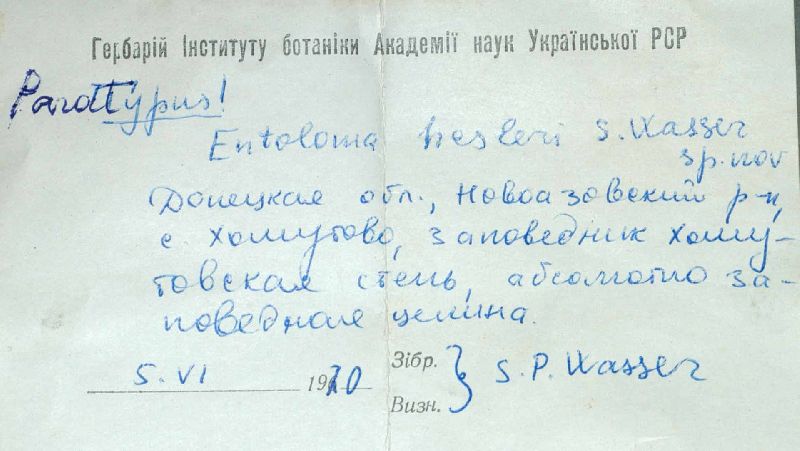 Гербарій Інституту ботаніки Академії наук Української РСР
Paratypus!
Entoloma hesleri S. Wasser
sp. nov
Донецкая обл., Новоазовский р-н,
с. Хомутово, заповедник Хому-
товская степь, абсолютно за-
поведная целина.
5. VI 1970
Зібр.
Визн.
S. P. Wasser